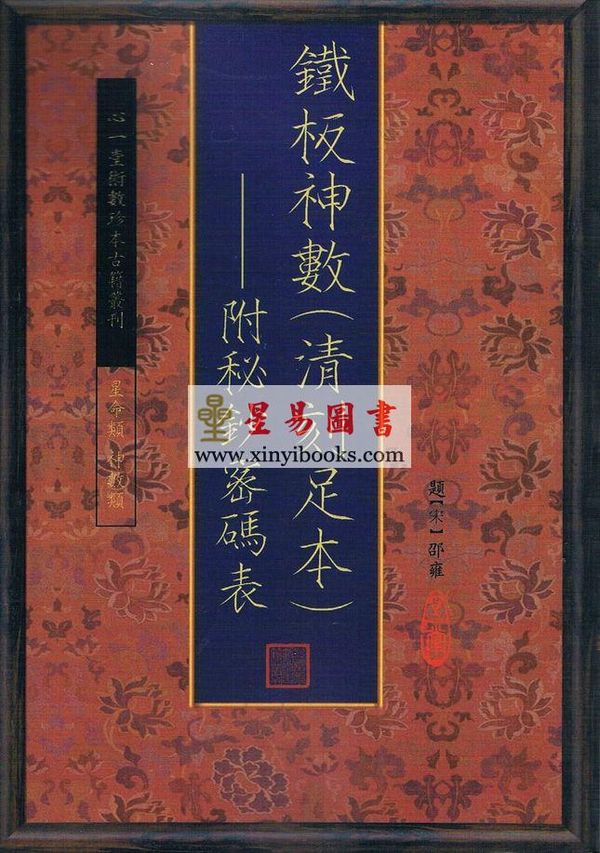 鐵板神數(清刻足本)
——附秘鈔密碼表
題【宋】邵雍
心一堂術數珍本古籍叢刊
星命類 神數類
星易圖書
www.xinyibooks.com